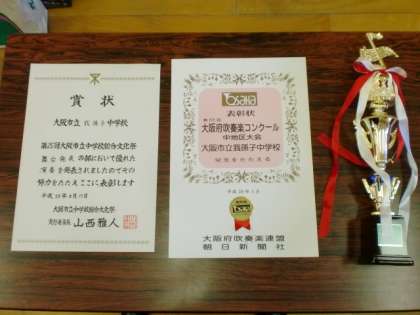 賞状
大阪市立 我孫子 中学校
第25回大阪市立中学校総合文化祭
舞台発表の部において優れた
演奏を発表されましたのでその
栄誉をたたえここに表彰します
大阪市立中学校総合文化祭
山西雅人
Osaka
表彰状
大阪府吹奏楽コンクール
中地区大会
大阪市立我孫子中学校
大阪府吹奏楽連盟
朝日新聞社